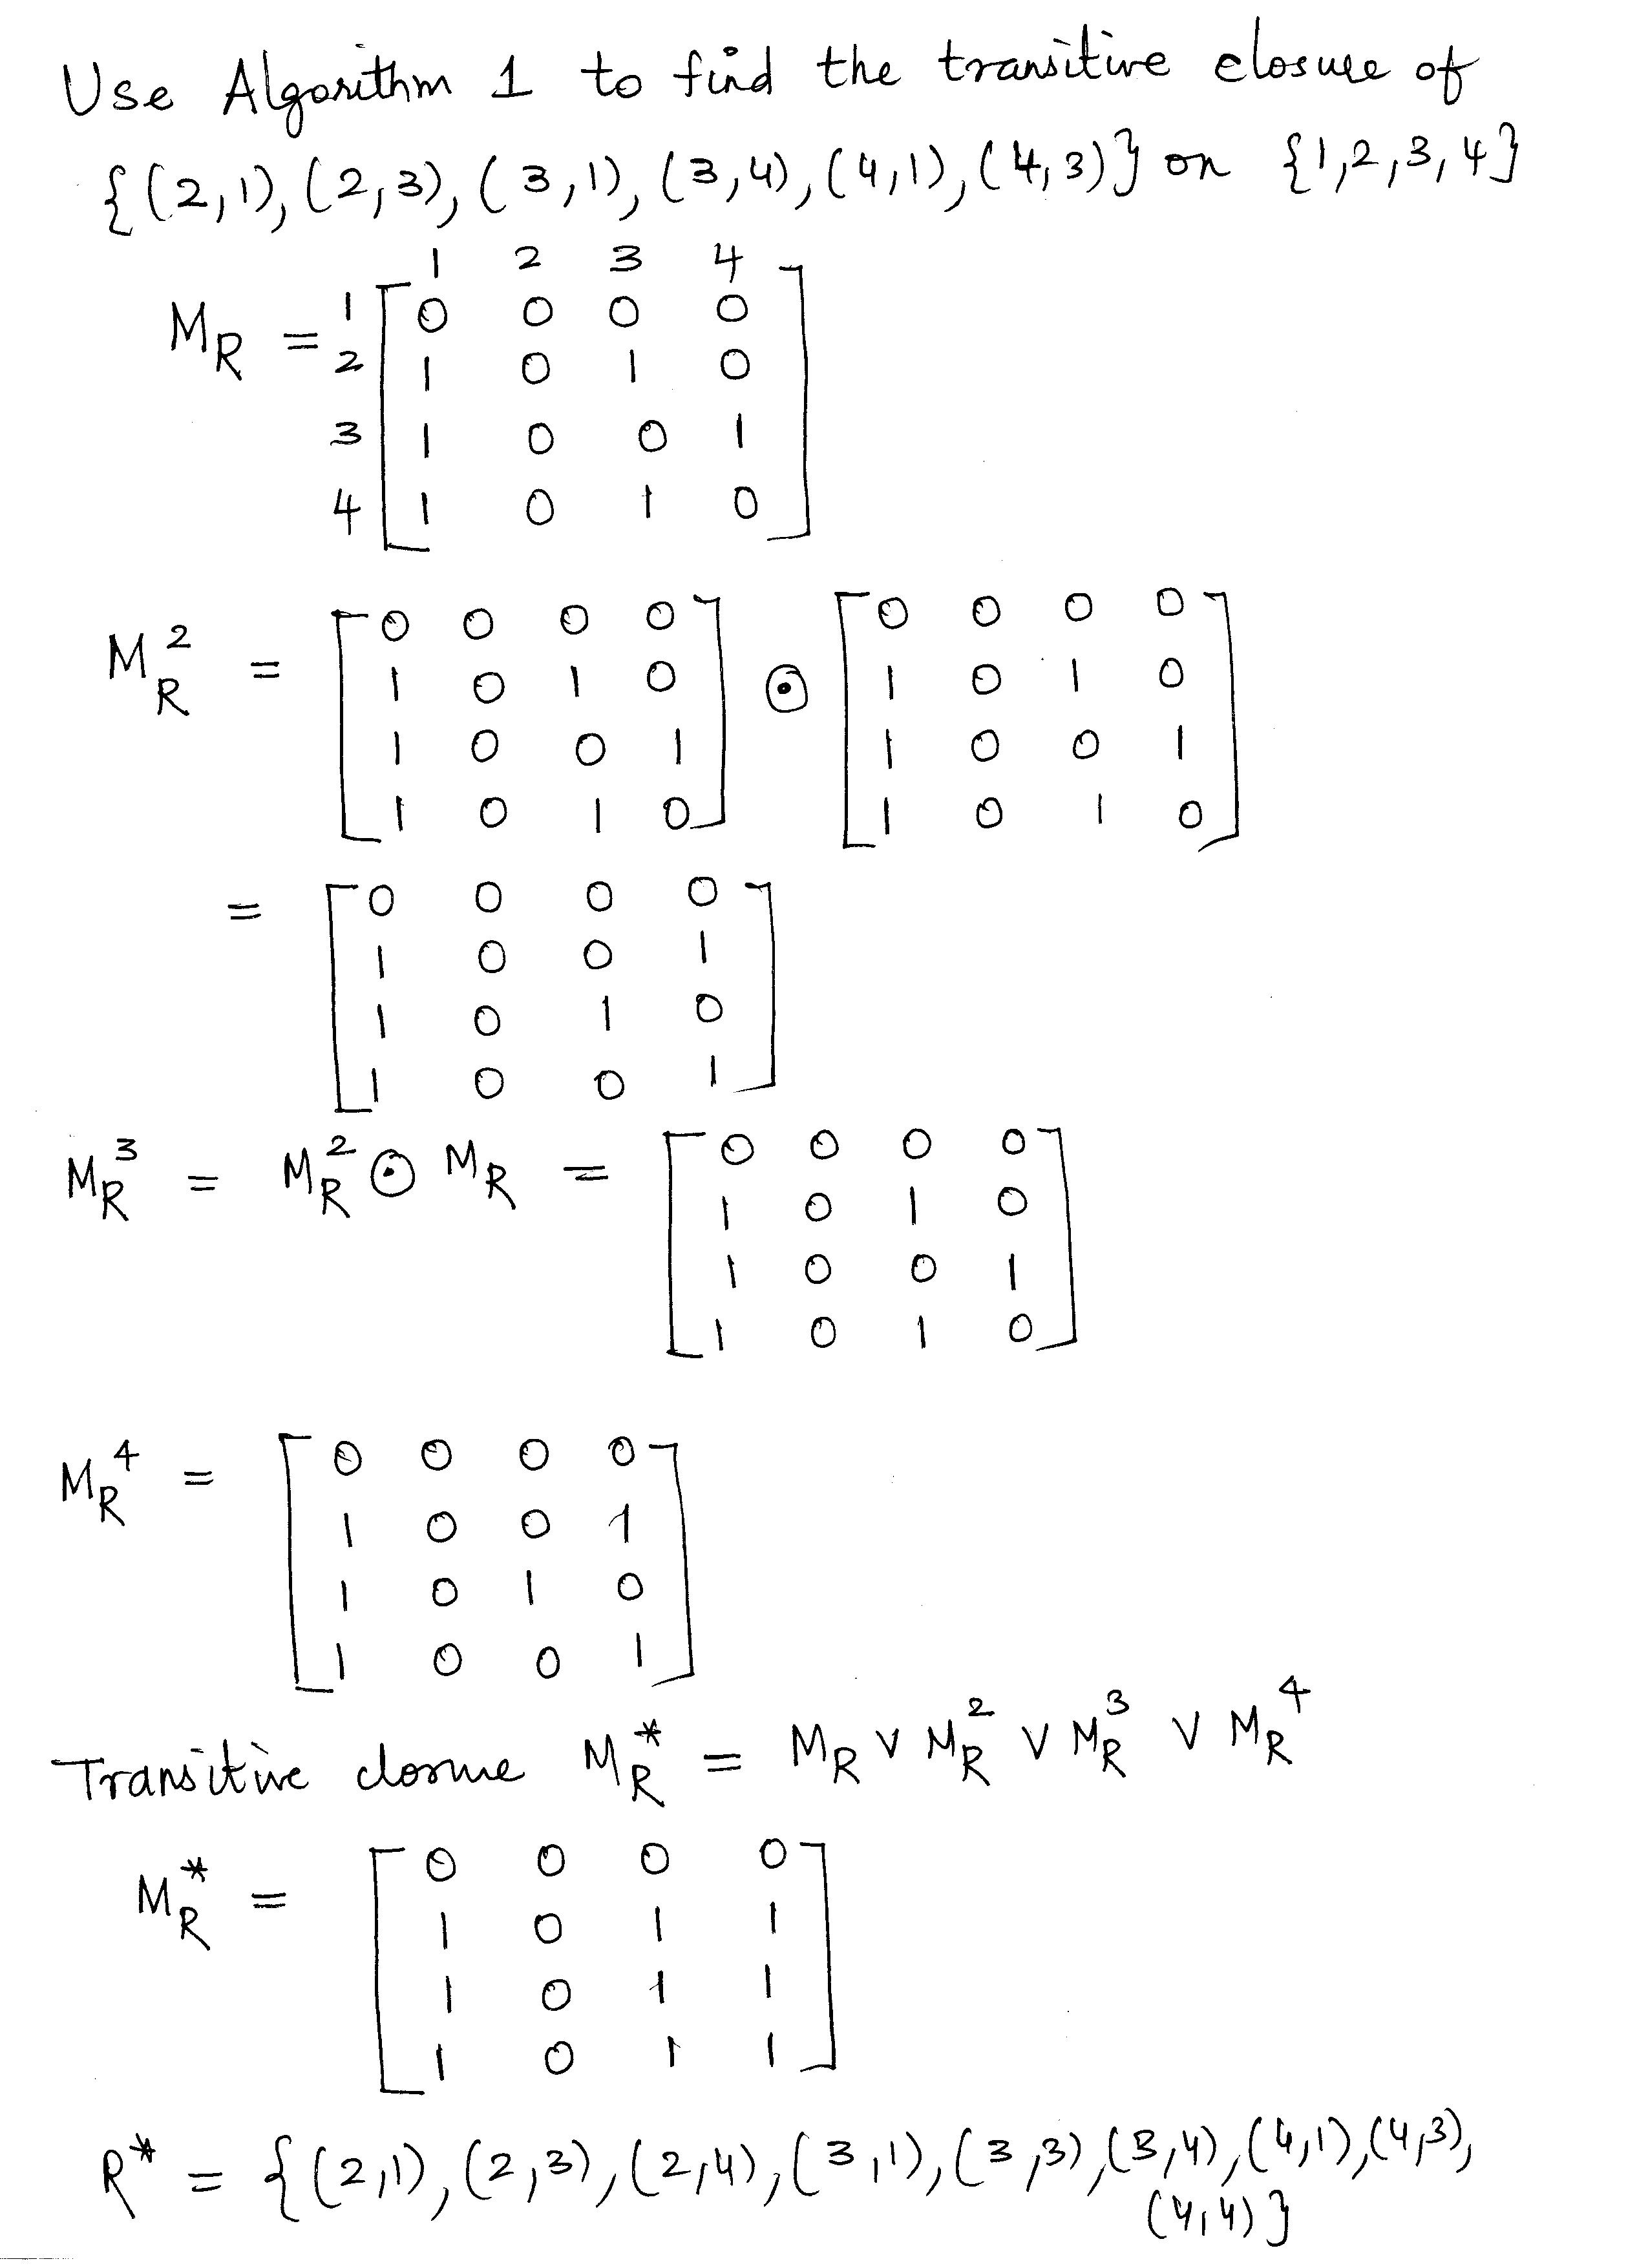 Use Algorithm 1 to find the transitive closure of
{(2,1), (2,3), (3,1), (3,4), (4,1), (4,3)} on {1,2,3,4}
1 2 3 4
M_R = 1 [ 0 0 0 0
2 1 0 1 0
3 1 0 0 1
4 1 0 1 0 ]
M_R^2 = [ 0 0 0 0 ] ⊙ [ 0 0 0 0 ]
1 0 1 0 1 0 1 0
1 0 0 1 1 0 0 1
1 0 1 0 1 0 1 0
= [ 0 0 0 0
1 0 0 1
1 0 1 0
1 0 0 1 ]
M_R^3 = M_R^2 ⊙ M_R = [ 0 0 0 0
1 0 1 0
1 0 0 1
1 0 1 0 ]
M_R^4 = [ 0 0 0 0
1 0 0 1
1 0 1 0
1 0 0 1 ]
Transitive closure M_R^* = M_R ∨ M_R^2 ∨ M_R^3 ∨ M_R^4
M_R^* = [ 0 0 0 0
1 0 1 1
1 0 1 1
1 0 1 1 ]
R^* = {(2,1), (2,3), (2,4), (3,1), (3,3), (3,4), (4,1), (4,3),
(4,4)}